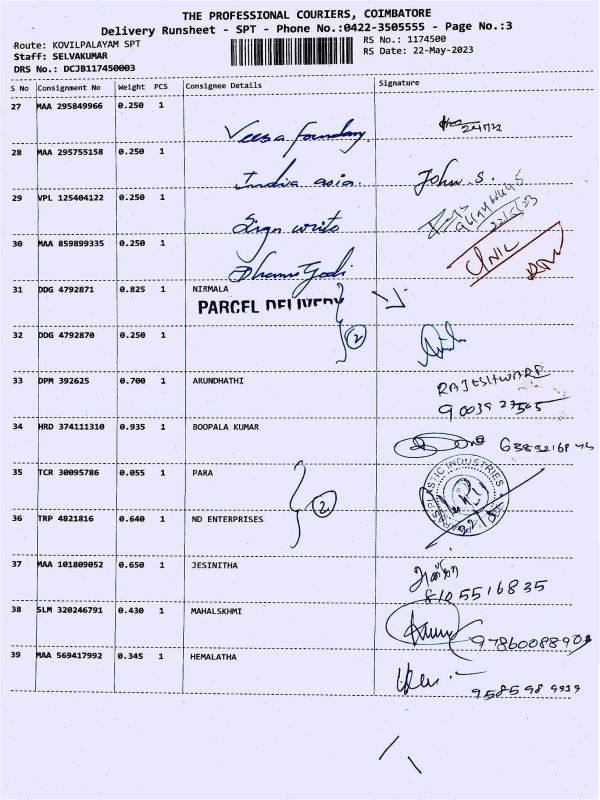 THE PROFESSIONAL COURIERS, COIMBATORE
Delivery Runsheet - SPT - Phone No.:0422-3505555 - Page No.:3
Route: KOVILPALAYAM SPT
RS No.: 1174500
Staff: SELVAKUMAR
RS Date: 22-May-2023
DRS No.: DCJB117450003
S No Consignment No Weight PCS Consignee Details Signature
27 MAA 295849966 0.250 1
Veesa foundary
28 MAA 295755158 0.250 1
India asia. John. S.
29 VPL 125404122 0.250 1
Sign write
22/5/23
30 MAA 859899335 0.250 1
31 DDG 4792871 0.825 1 NIRMALA
PARCEL DELIVERY
32 DDG 4792870 0.250 1
2
33 DPM 392625 0.700 1 ARUNDHATHI
RAJESHWARI
90039 27505
34 HRD 374111310 0.935 1 BOOPALA KUMAR
35 TCR 30095786 0.055 1 PARA
PLASTIC INDUSTRIES
2
36 TRP 4821816 0.640 1 ND ENTERPRISES
37 MAA 101809052 0.650 1 JESINITHA
8105516835
38 SLM 320246791 0.430 1 MAHALSKHMI
9786008890
39 MAA 569417992 0.345 1 HEMALATHA
958598 9939